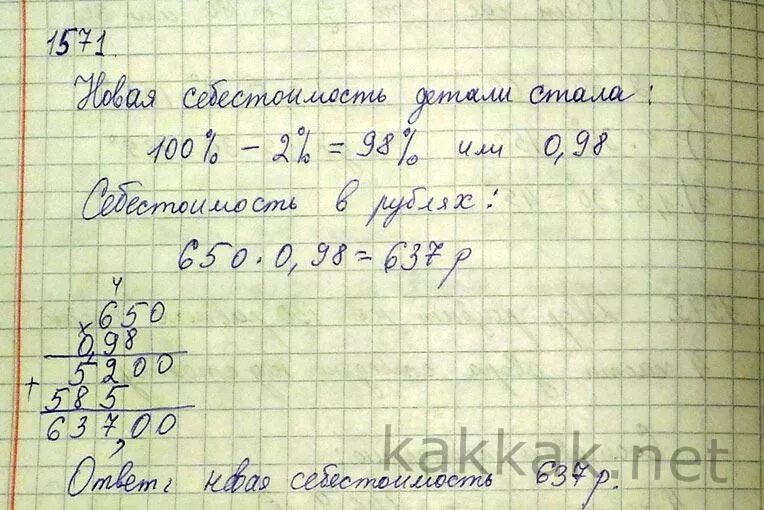 1571.
Новая себестоимость детали стала:
100% - 2% = 98% или 0,98
Себестоимость в рублях:
650 · 0,98 = 637 р
4
650
x 0,98
5200
+ 585
637,00
Ответ: новая себестоимость 637 р.
kakkak.net